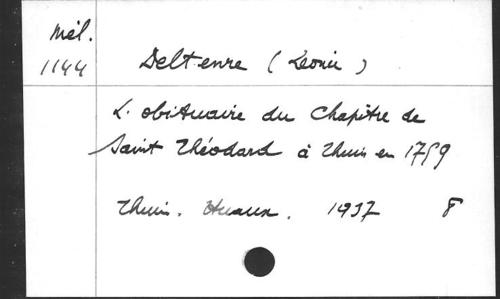 Mél.
1144
Deltenre (Léonie)
L'obituaire du Chapitre de
Saint Théodard à Thuin en 1759
Thuin. 1937 8